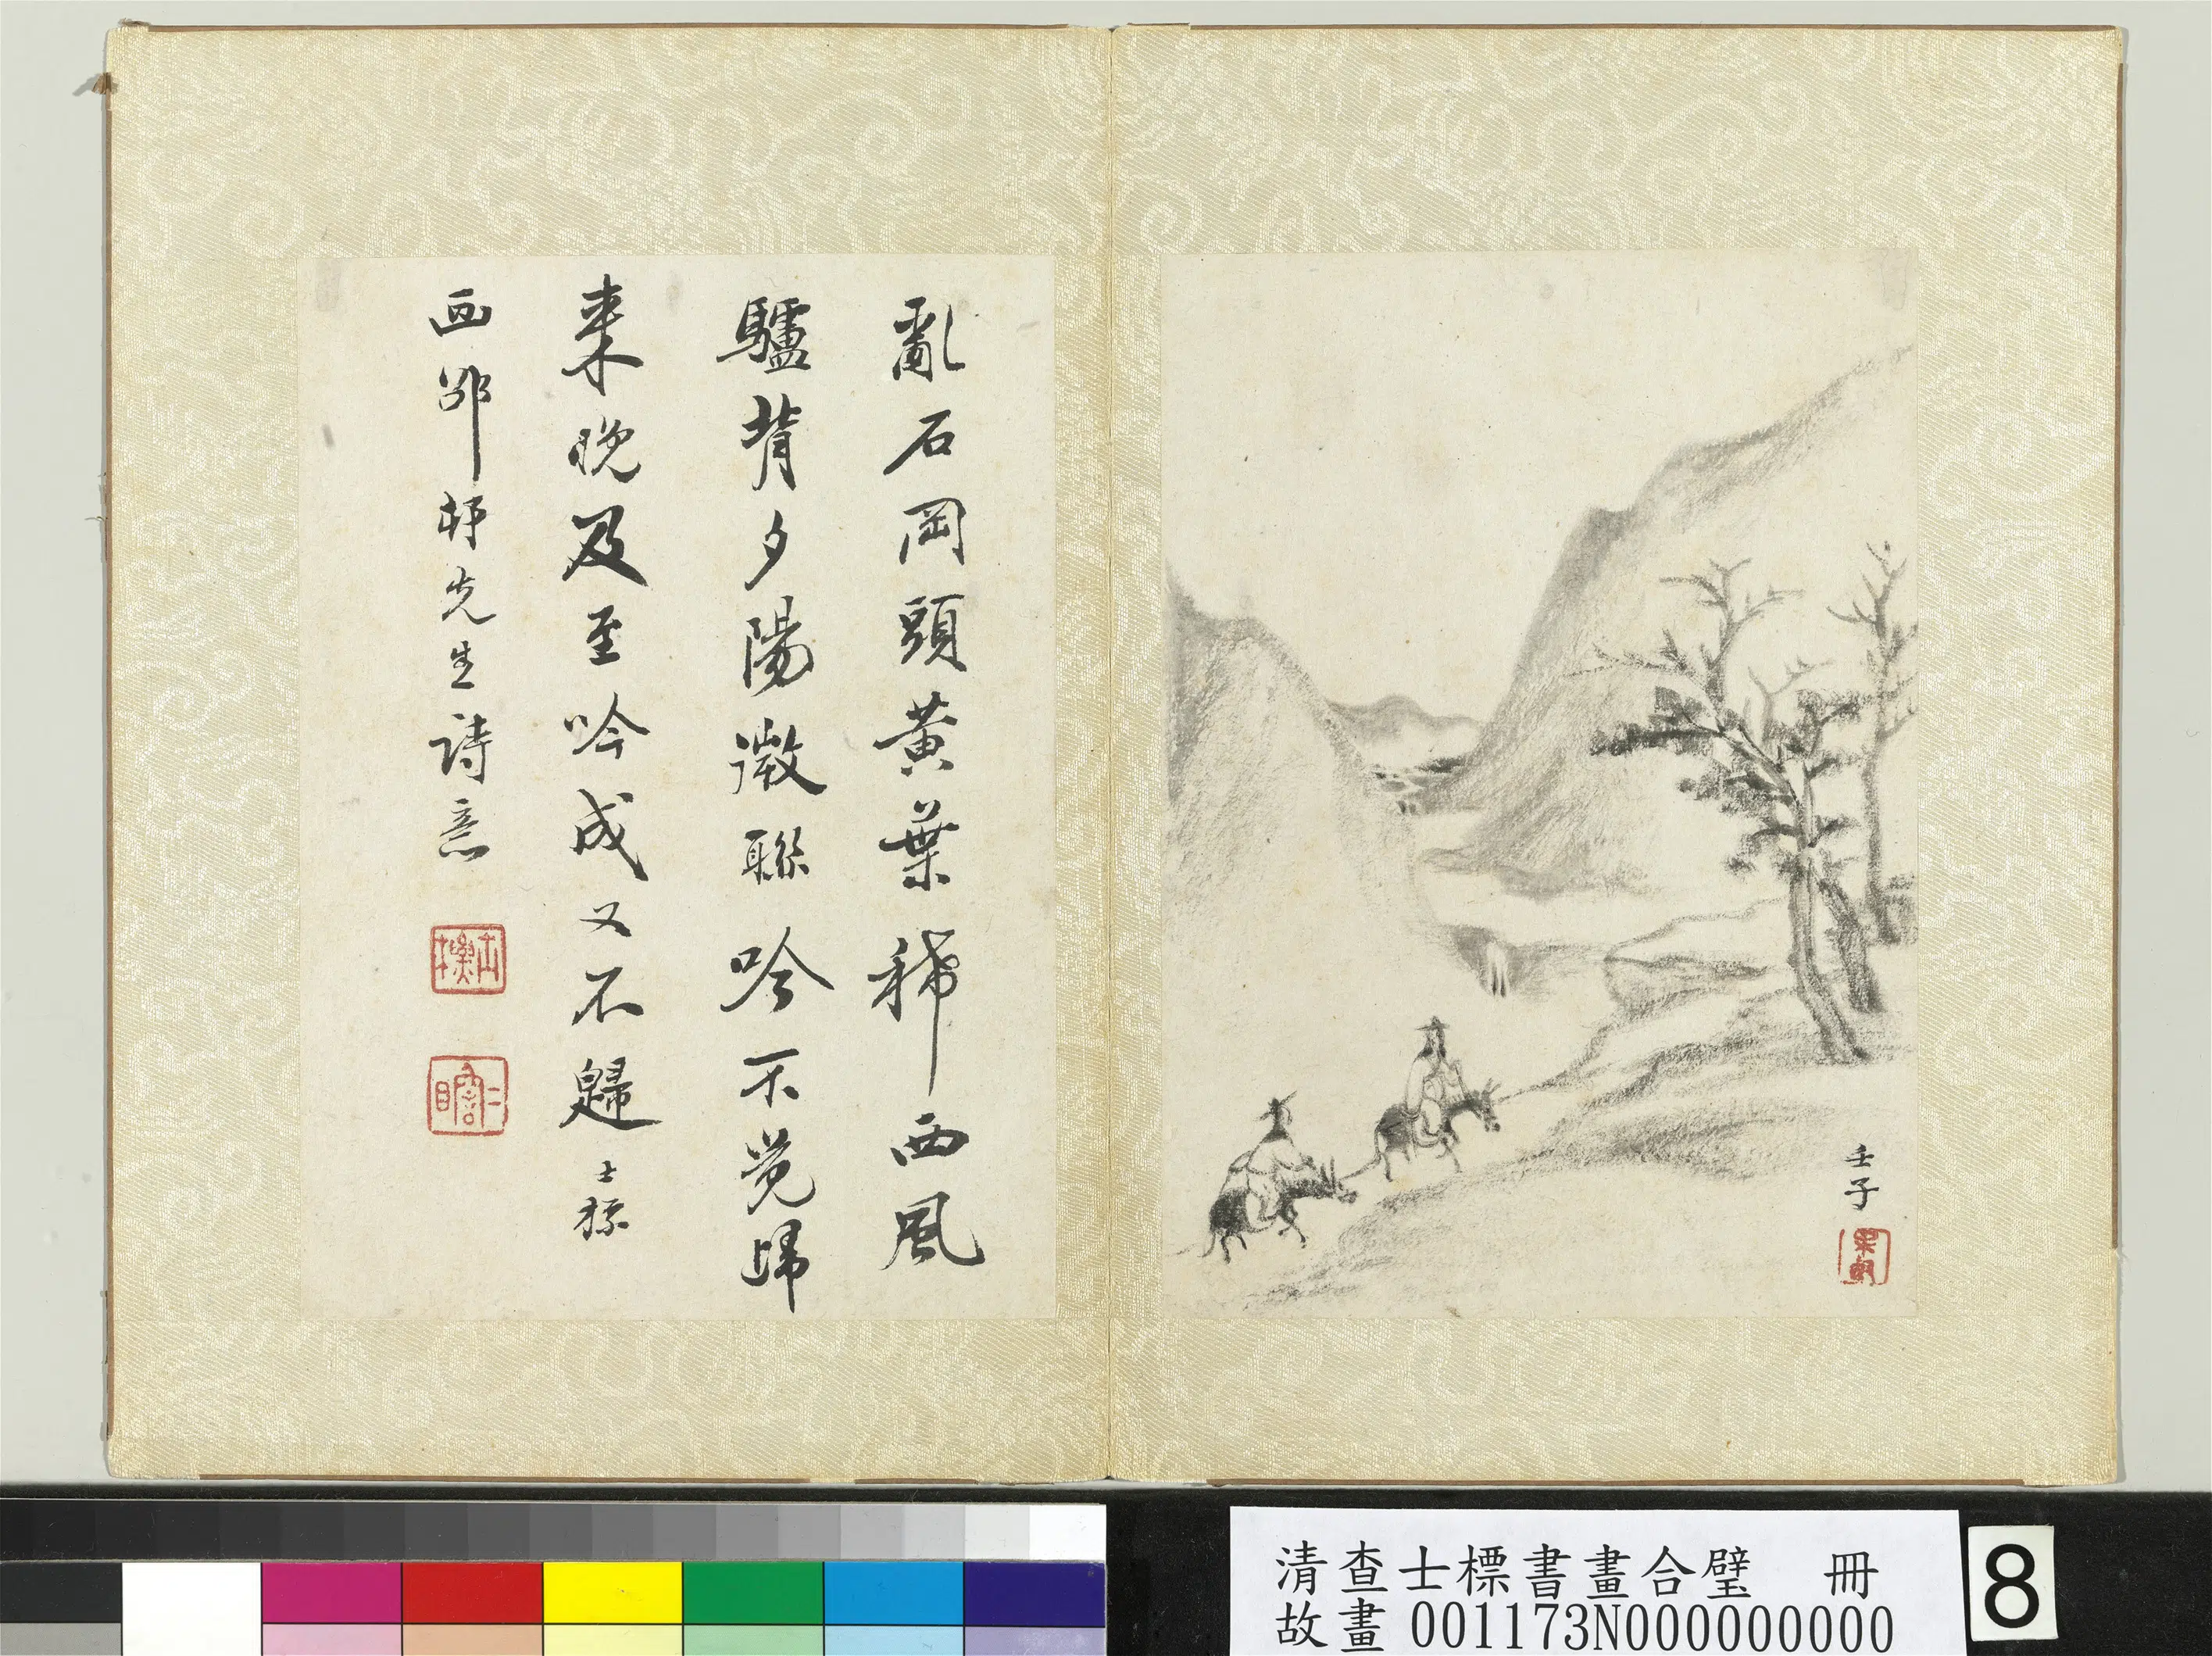 壬子
亂石岡頭黃葉稀西風
驢背夕陽微聯吟不覺歸
來晚及至吟成又不歸 士標
画邵村先生詩意
士標
二瞻
清查士標書畫合璧 冊
故畫 001173N000000000
8